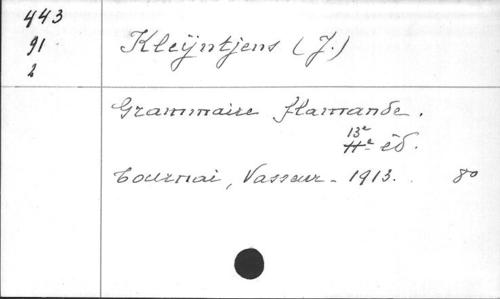 443
91
2
Kleÿntjens (J.)
Grammaire flamande.
13e
11e éd.
Tournai, Vasseur - 1913. 8o